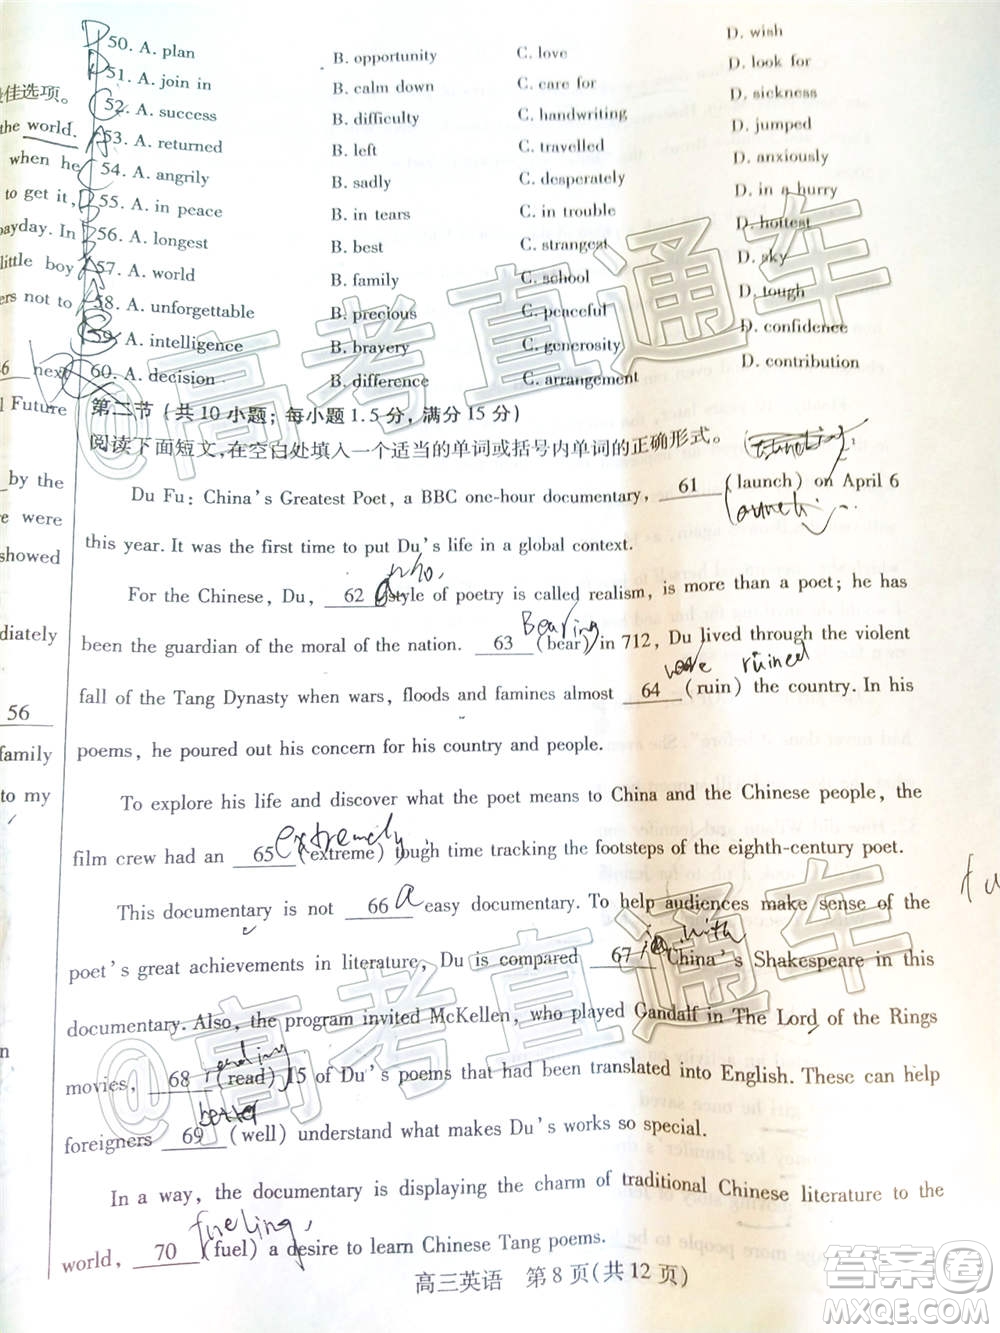 50. A. plan B. opportunity C. love D. wish
51. A. join in B. calm down C. care for D. look for
52. A. success B. difficulty C. handwriting D. sickness
53. A. returned B. left C. travelled D. jumped
54. A. angrily B. sadly C. desperately D. anxiously
55. A. in peace B. in tears C. in trouble D. in a hurry
56. A. longest B. best C. strangest D. hottest
57. A. world B. family C. school D. sky
58. A. unforgettable B. precious C. peaceful D. tough
59. A. intelligence B. bravery C. generosity D. confidence
60. A. decision B. difference C. arrangement D. contribution
第二节 (共 10 小题; 每小题 1.5 分, 满分 15 分)
阅读下面短文, 在空白处填入一个适当的单词或括号内单词的正确形式。
Du Fu: China's Greatest Poet, a BBC one-hour documentary, 61 (launch) on April 6
this year. It was the first time to put Du's life in a global context.
who.
For the Chinese, Du, 62 style of poetry is called realism, is more than a poet; he has
Bearing
been the guardian of the moral of the nation. 63 (bear) in 712, Du lived through the violent
were ruined
fall of the Tang Dynasty when wars, floods and famines almost 64 (ruin) the country. In his
poems, he poured out his concern for his country and people.
To explore his life and discover what the poet means to China and the Chinese people, the
extremely
film crew had an 65 (extreme) tough time tracking the footsteps of the eighth-century poet.
This documentary is not 66 a easy documentary. To help audiences make sense of the
with
poet's great achievements in literature, Du is compared 67 China's Shakespeare in this
documentary. Also, the program invited McKellen, who played Gandalf in The Lord of the Rings
reading
movies, 68 (read) 15 of Du's poems that had been translated into English. These can help
better
foreigners 69 (well) understand what makes Du's works so special.
In a way, the documentary is displaying the charm of traditional Chinese literature to the
fueling
world, 70 (fuel) a desire to learn Chinese Tang poems.
高三英语 第 8 页(共 12 页)
佳选项。
the world.
when he
to get it,
payday. In
little boy
ers not to
6 next
l Future
by the
e were
showed
diately
56
family
to my
n
@高考直通车
@高考直通车
答案卷
MXQE.COM